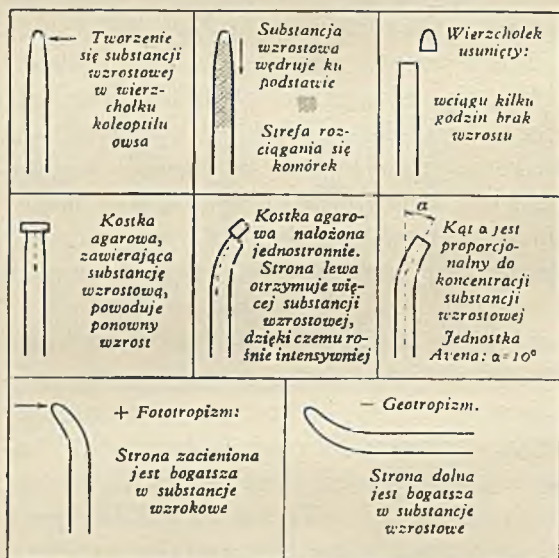 Tworzenie
się substancji
wzrostowej
w wierz-
chołku
koleoptilu
owsa
Substancja
wzrostowa
wędruje ku
podstawie
Strefa roz-
ciągania się
komórek
Wierzchołek
usunięty:
wciągu kilku
godzin brak
wzrostu
Kostka
agarowa,
zawierająca
substancję
wzrostową,
powoduje
ponowny
wzrost
Kostka agaro-
wa nałożona
jednostronnie.
Strona lewa
otrzymuje wię-
cej substancji
wzrostowej,
dzięki czemu ro-
śnie intensywniej
α
Kąt α jest
proporcjo-
nalny do
koncentracji
substancji
wzrostowej
Jednostka
Avena: α=10°
+ Fototropizm:
Strona zacieniona
jest bogatsza
w substancje
wzrokowe
− Geotropizm.
Strona dolna
jest bogatsza
w substancje
wzrostowe